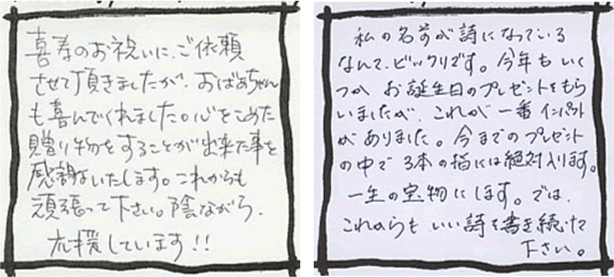 喜寿のお祝いに、ご依頼
させて頂きましたが、おばあちゃん
も喜んでくれました。心をこめた
贈り物をすることが出来た事を
感謝いたします。これからも
頑張って下さい。陰ながら、
応援しています!!
私の名前が詩になっている
なんて、ビックリです。今年もいく
つか お誕生日のプレゼントをもら
いましたが、これが一番インパクト
がありました。今までのプレゼント
の中で 3本の指には絶対入ります。
一生の宝物にします。では、
これからも いい詩を書き続けて
下さい。